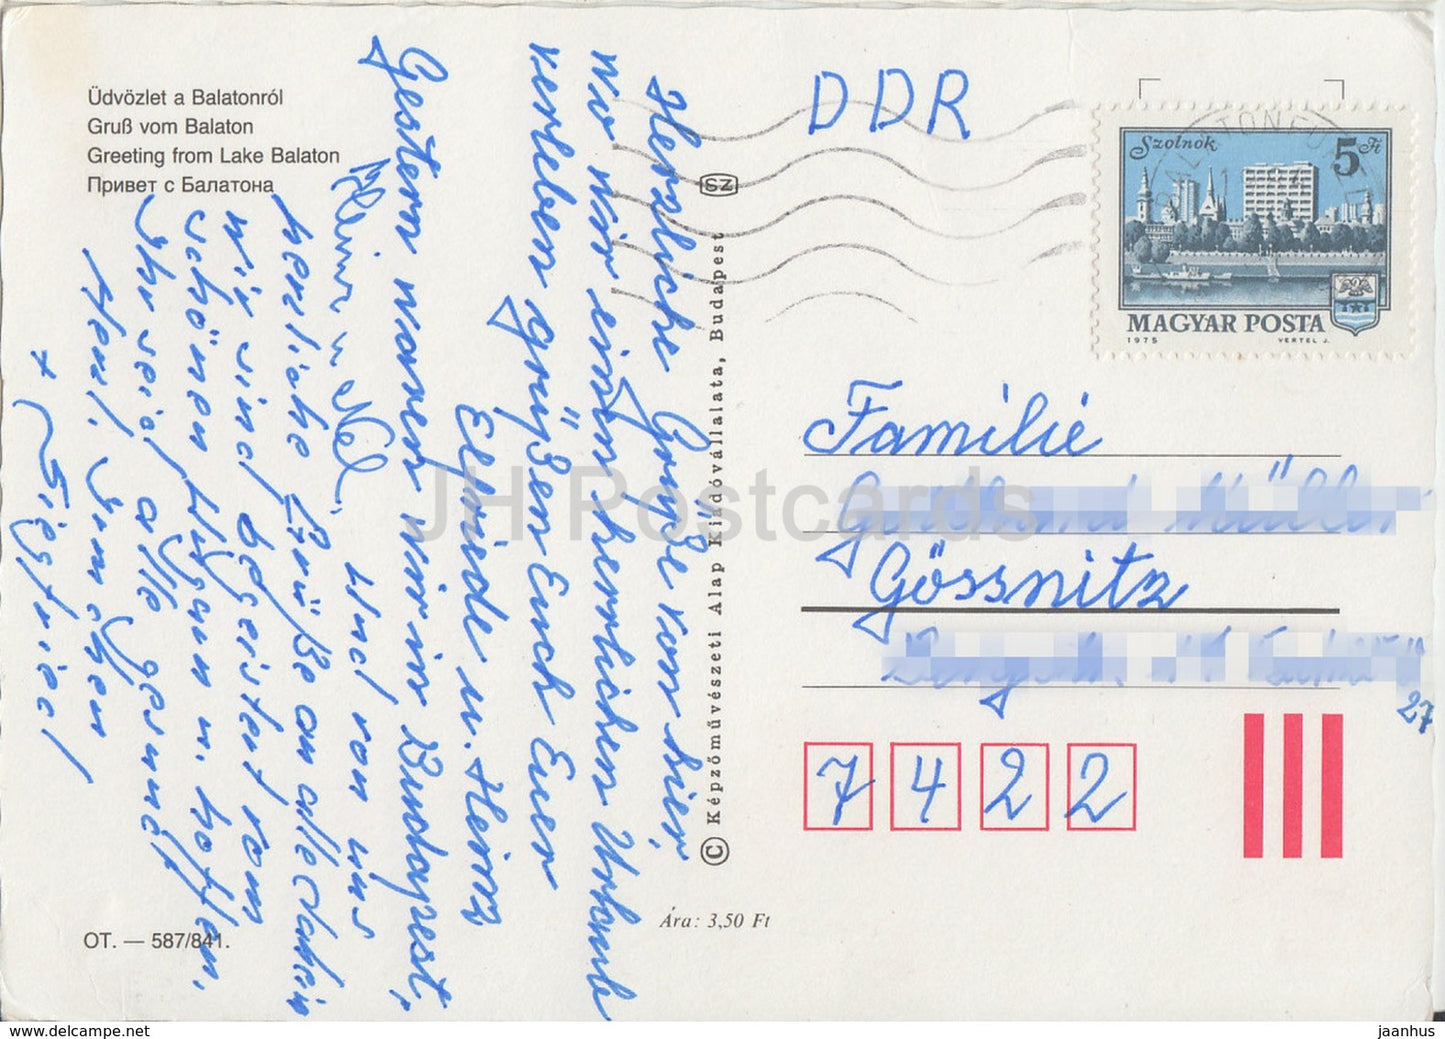 Üdvözlet a Balatonról
Gruß vom Balaton
Greeting from Lake Balaton
Привет с Балатона
Herzliche Grüße von hier,
wo wir einen herrlichen Urlaub
verleben grüßen Euch Euer
Elfriede u. Heinz
Gestern waren wir in Budapest,
Und von uns
herzliche Grüße an alle daheim
wir sind begeistert vom
schönen Ungarn u. hoffen,
Ihr seid alle gesund
Siegfried
OT. — 587/841.
Ára: 3,50 Ft
© Képzőművészeti Alap Kiadóvállalata, Budapest
SZ
DDR
Szolnok
5 Ft
MAGYAR POSTA
1975
VERTEL J.
Familie
Gössnitz
27
7422
JH Postcards
www.delcampe.net
jaanhus